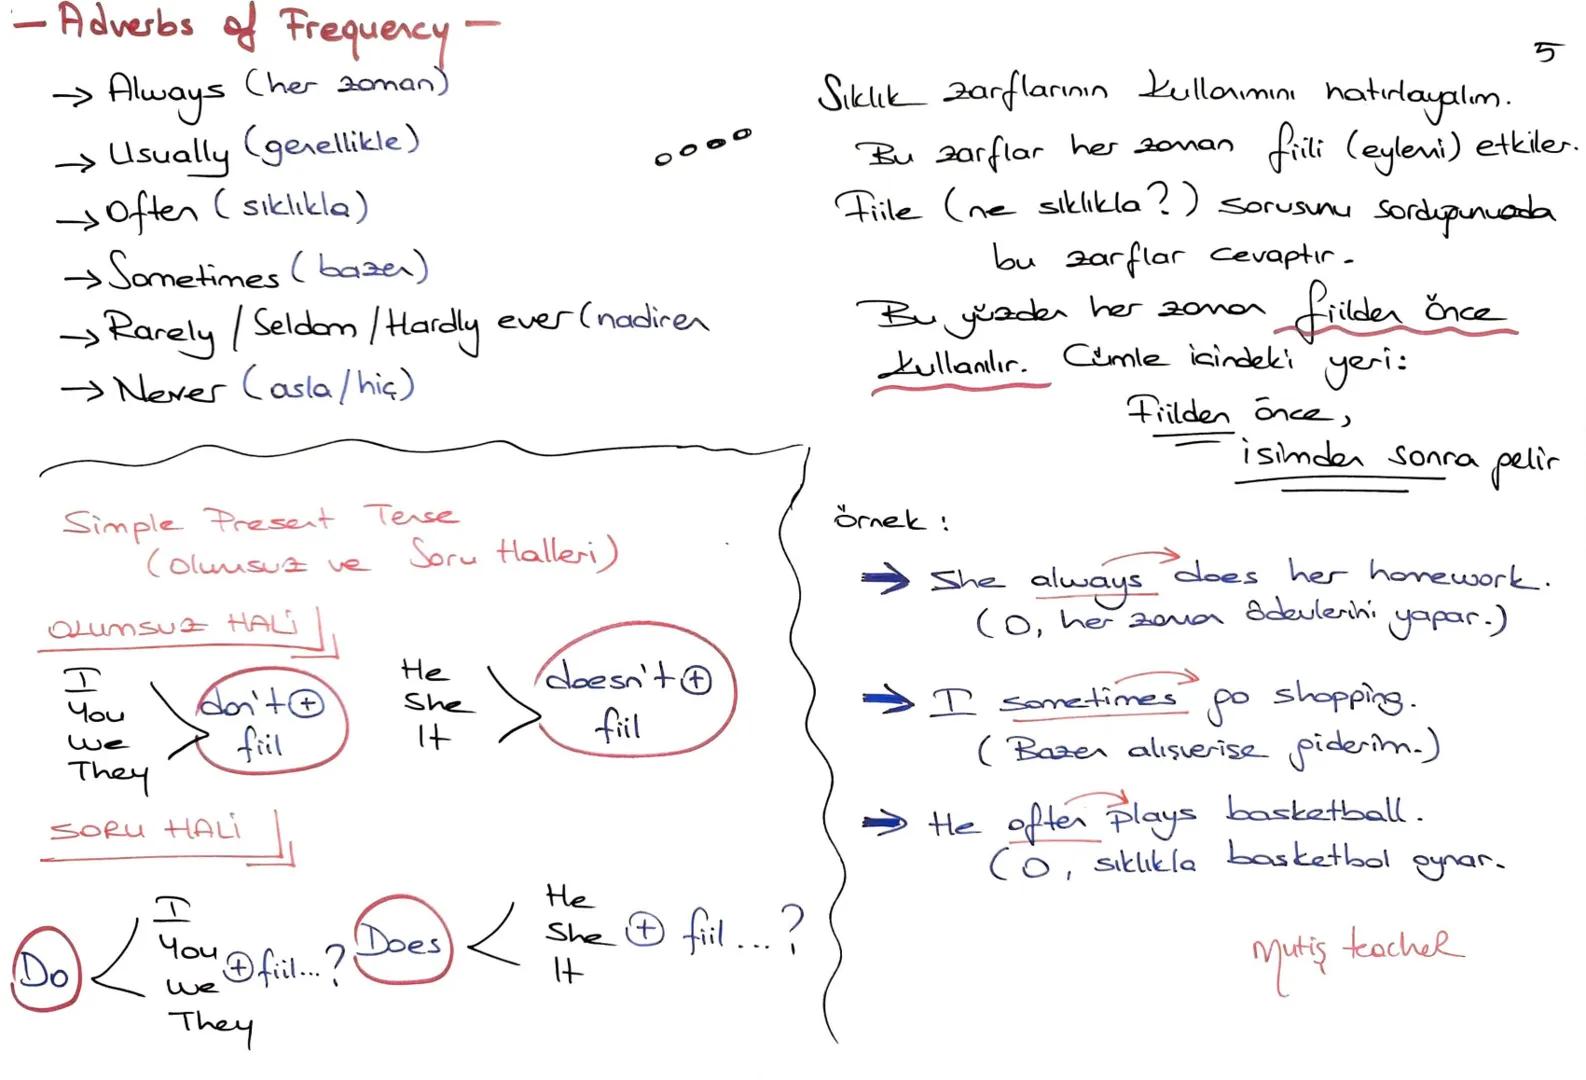 - Adverbs of Frequency -
→ Always (her zaman)
→ Usually (genellikle)
→ Often (sıklıkla)
→ Sometimes (bazen)
→ Rarely / Seldom / Hardly ever (nadiren
→ Never (asla/hiç)
5
Sıklık zarflarının kullanımını hatırlayalım.
Bu zarflar her zaman fiili (eylemi) etkiler.
Fiile (ne sıklıkla?) sorusunu sorduğunuzda
bu zarflar cevaptır.
Bu yüzden her zaman fiilden önce
kullanılır. Cümle içindeki yeri:
Fiilden önce,
isimden sonra gelir
Simple Present Tense
(Olumsuz ve Soru Halleri)
OLUMSUZ HALİ
I
You
We
They
don't + fiil
He
She
It
doesn't + fiil
SORU HALİ
Do
I
You
We
They
+ fiil...?
Does
He
She
It
+ fiil ...?
örnek :
→ She always does her homework.
(O, her zaman ödevlerini yapar.)
→ I sometimes go shopping.
(Bazen alışverişe giderim.)
→ He often plays basketball.
(O, sıklıkla basketbol oynar.
Mutiş teacher